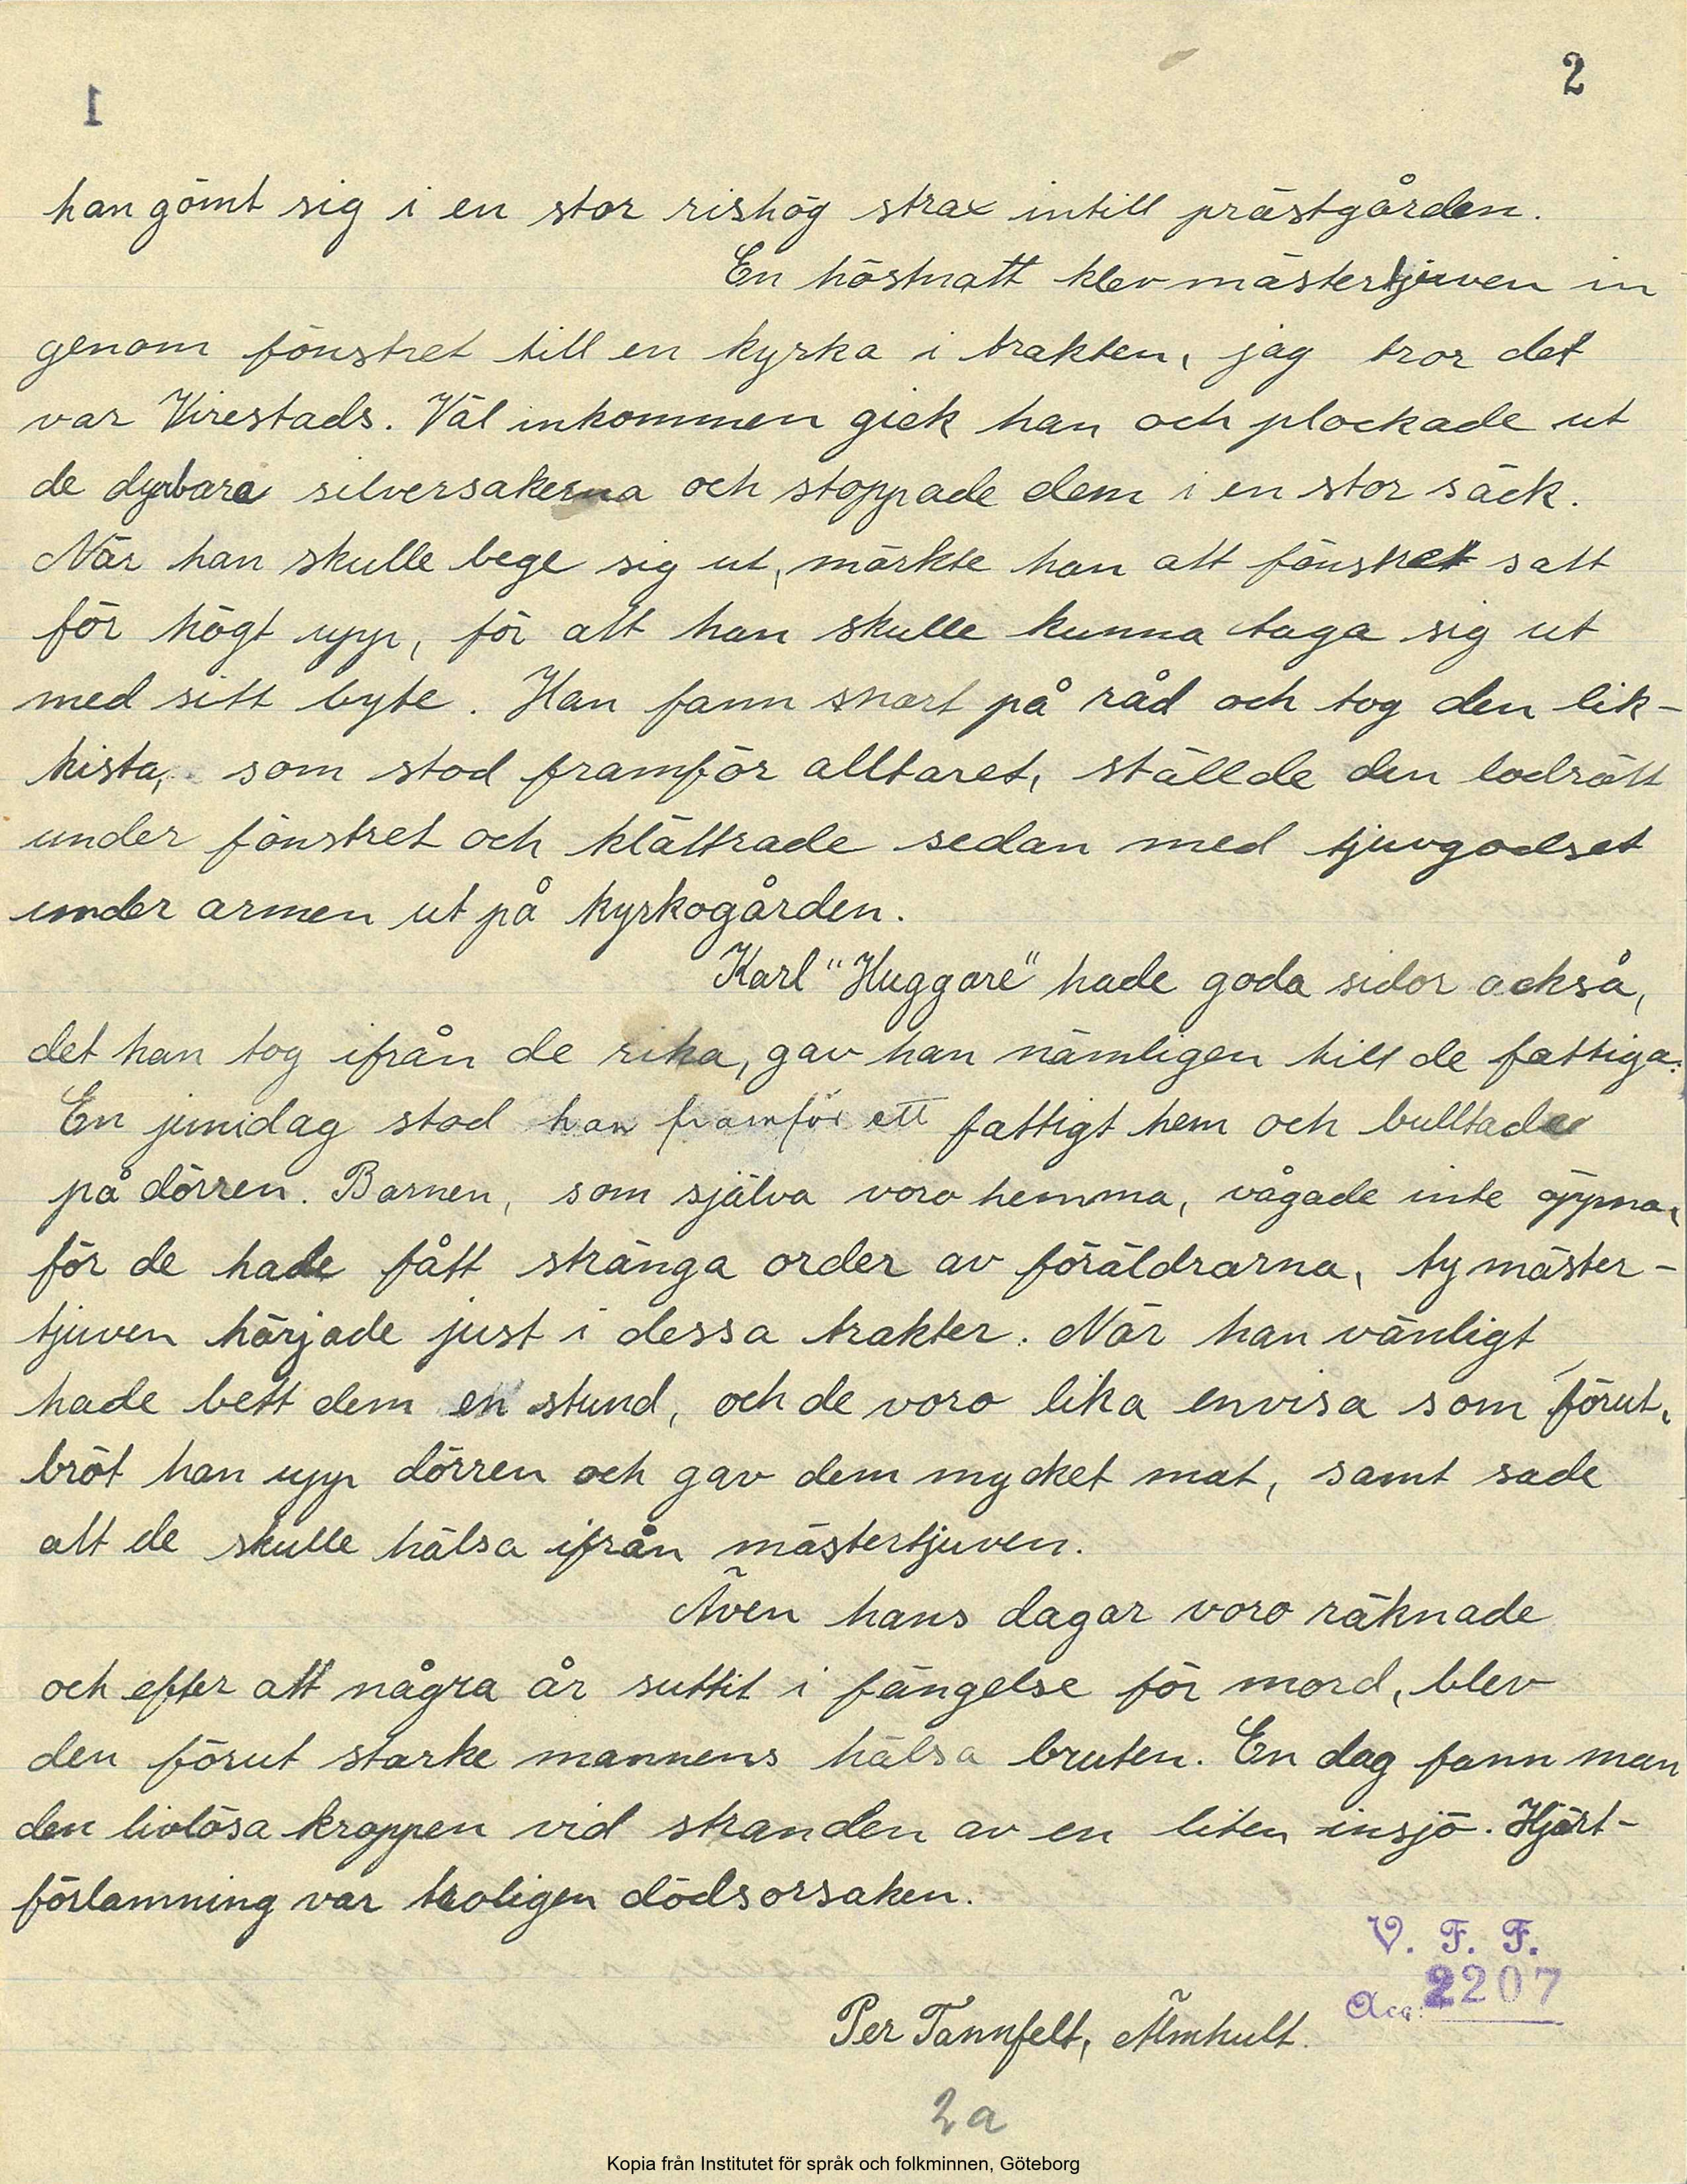 2
1
han gömt sig i en stor rishög strax intill prästgården.
En höstnatt klev mästertjuven in
genom fönstret till en kyrka i trakten, jag tror det
var Virestads. Väl inkommen gick han och plockade ut
de dyrbara silversakerna och stoppade dem i en stor säck.
När han skulle bege sig ut, märkte han att fönstret satt
för högt upp, för att han skulle kunna taga sig ut
med sitt byte. Han fann snart på råd och tog den lik-
kista, som stod framför alltaret, ställde den lodrätt
under fönstret och klättrade sedan med tjuvgodset
under armen ut på kyrkogården.
Karl "Huggare" hade goda sidor också,
det han tog ifrån de rika, gav han nämligen till de fattiga.
En junidag stod han framför ett fattigt hem och bulltade
på dörren. Barnen, som själva voro hemma, vågade inte öppna,
för de hade fått stränga order av föräldrarna, ty mäster-
tjuven härjade just i dessa trakter. När han vänligt
hade bett dem en stund, och de voro lika envisa som förut,
bröt han upp dörren och gav dem mycket mat, samt sade
att de skulle hälsa ifrån mästertjuven.
Även hans dagar voro räknade
och efter att några år suttit i fängelse för mord, blev
den förut starke mannens hälsa bruten. En dag fann man
den livlösa kroppen vid stranden av en liten insjö. Hjärt-
förlamning var troligen dödsorsaken.
V. F. F.
Acc. 2207
Per Tannfelt, Älmhult.
2a
Kopia från Institutet för språk och folkminnen, Göteborg